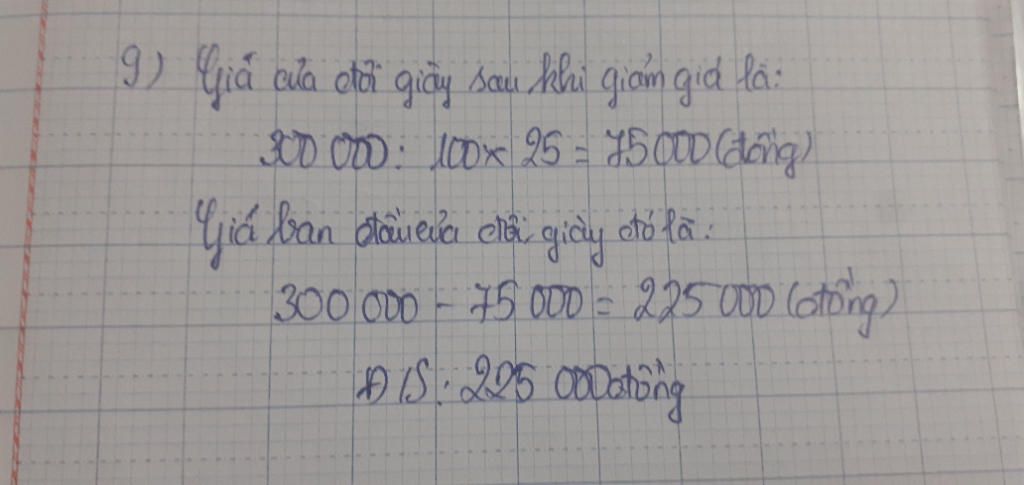 9) Giá của đôi giày sau khi giảm giá là:
300 000 : 100 x 25 = 75 000 (đồng)
Giá ban đầu của đôi giày đó là:
300 000 - 75 000 = 225 000 (đồng)
Đ/S: 225 000 đồng